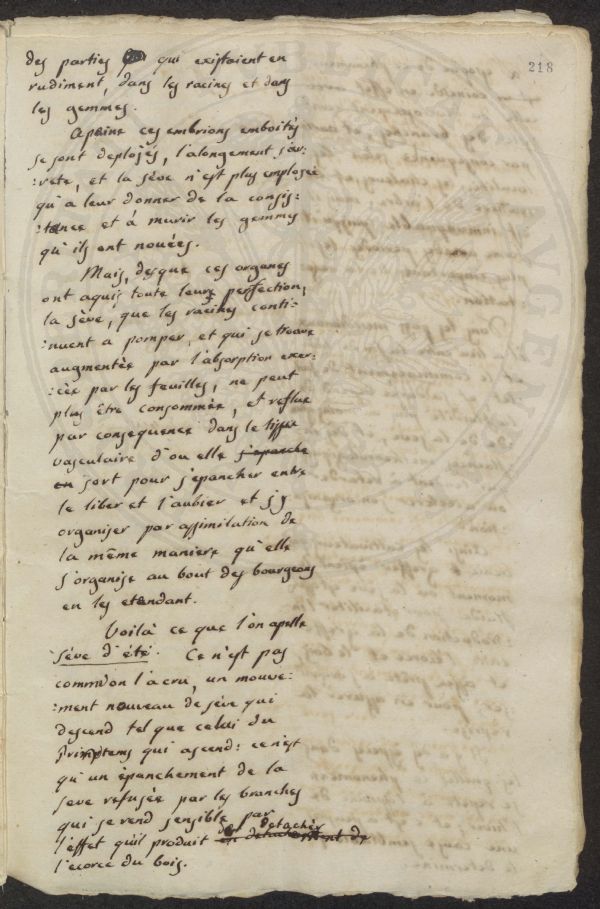 218
des parties qui existaient en
rudiment, dans les racines et dans
les gemmes.
Apeine ces embrions emboités
se sont deployés, l'alongement s'ar:
:rete, et la sève n'est plus employée
qu'a leur donner de la consis:
:tance et á murir les gemmes
qu'ils ont nouées.
Mais, desque ces organes
ont aquis toute leur perfection,
la sève, que les racines conti:
:nuent a pomper, et qui se trouve
augmentée par l'absorption exer:
:cée par les feuilles, ne peut
plus être consommée, et reflue
par consequence dans le tissu
vasculaire d'ou elle s'epanche
en sort pour s'epancher entre
le liber et l'aubier et s'y
organiser par assimilation de
la même maniere qu'elle
s'organise au bout des bourgeons
en les etendant.
Voilà ce que l'on apelle
sève d'été. Ce n'est pas
comm'on l'a cru, un mouve:
:ment nouveau de sève qui
descend tel que celui du
printems qui ascend: ce n'est
qu'un épanchement de la
seve refusée par les branches
qui se rend sensible par
l'effet qu'il produit de detacher
l'ecorce du bois.